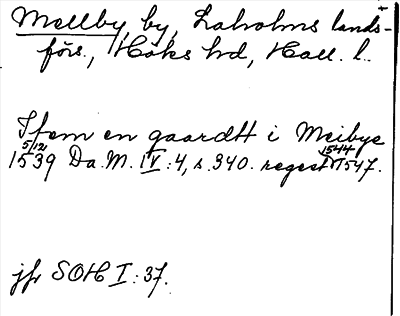 Mellby, by, Laholms lands-
förs., Höks hd, Hall. l.
Jtem en gaardtt i Meibye
5/12 1539 Da. M. IV:4, s. 340. regest 1544 1547.
jfr SOH I:37.